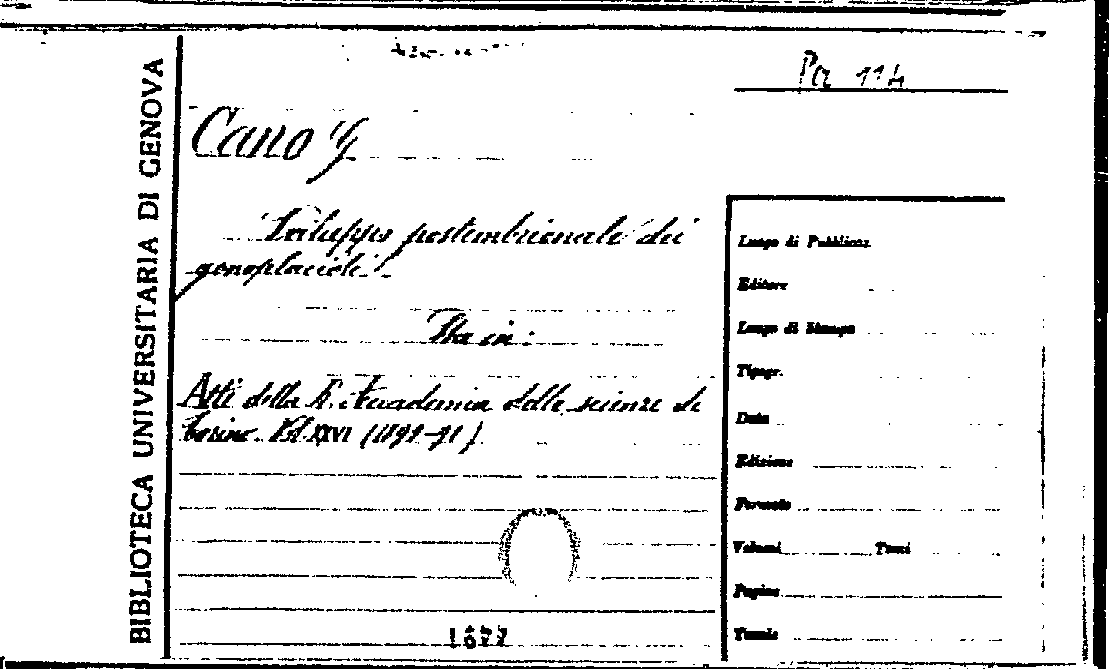 BIBLIOTECA UNIVERSITARIA DI GENOVA
Per 114
Cano G
Sviluppo postembrionale dei
gonoplacidi.
Sta in:
Atti della R. Accademia delle scienze di
Torino. Vol. XXVI (1891-91)
Luogo di Pubblicaz.
Editore
Luogo di Stampa
Tipogr.
Data
Edizione
Formato
Volumi Tomi
Pagine
Tavole